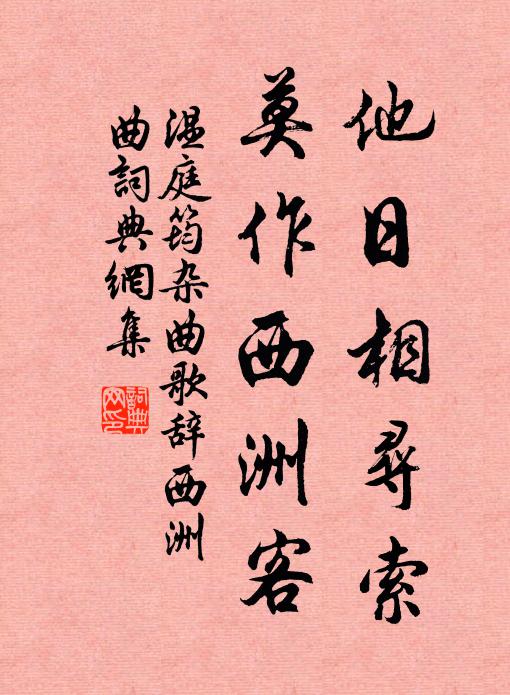 他日相尋索
莫作西洲客
温庭筠杂曲歌辞西洲
曲詞典網集
詞典网印